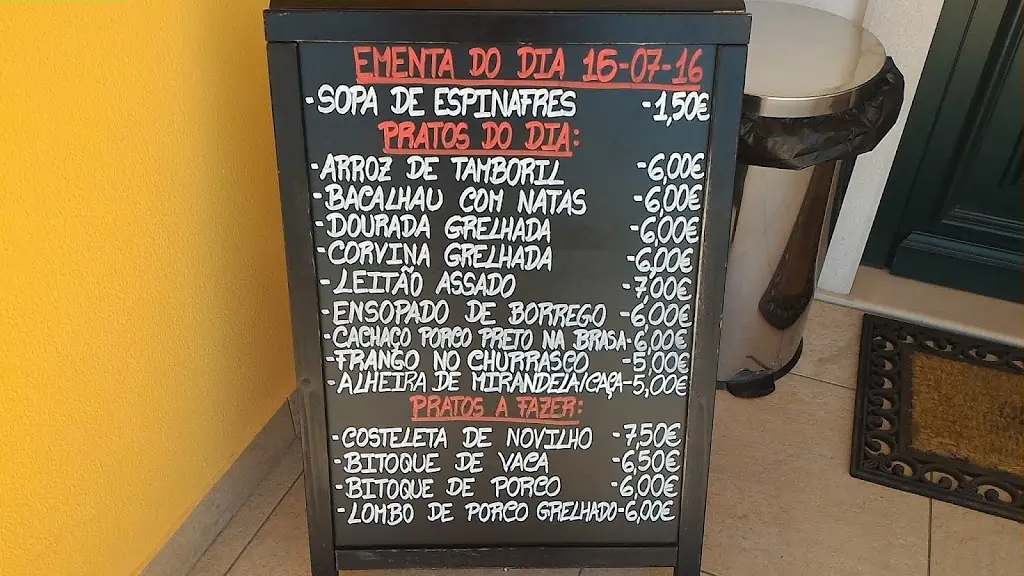 EMENTA DO DIA 15-07-16
-SOPA DE ESPINAFRES -1,50€
PRATOS DO DIA:
-ARROZ DE TAMBORIL -6,00€
-BACALHAU COM NATAS -6,00€
-DOURADA GRELHADA -6,00€
-CORVINA GRELHADA -6,00€
-LEITÃO ASSADO -7,00€
-ENSOPADO DE BORREGO -6,00€
-CACHAÇO PORCO PRETO NA BRASA-6,00€
-FRANGO NO CHURRASCO -5,00€
-ALHEIRA DE MIRANDELA/CAÇA-5,00€
PRATOS A FAZER:
-COSTELETA DE NOVILHO -7,50€
-BITOQUE DE VACA -6,50€
-BITOQUE DE PORCO -6,00€
-LOMBO DE PORCO GRELHADO-6,00€